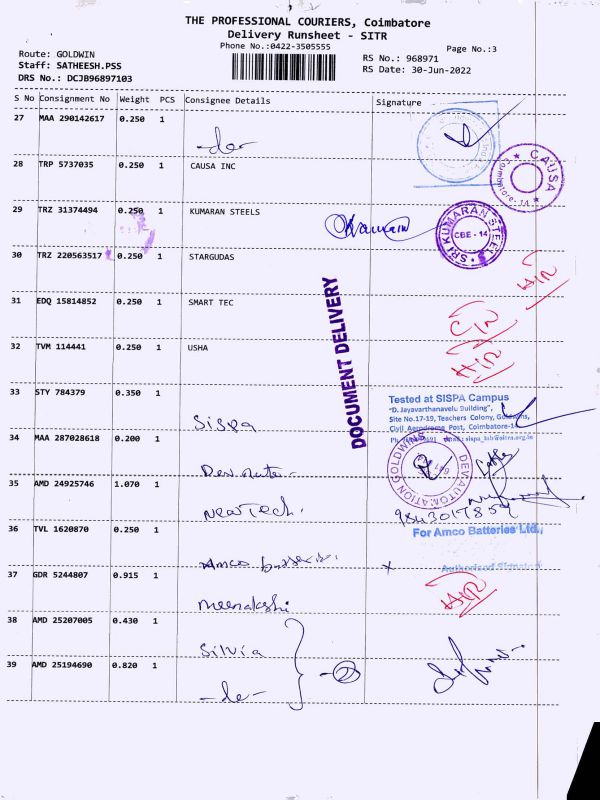 THE PROFESSIONAL COURIERS, Coimbatore
Delivery Runsheet - SITR
Phone No.:0422-3505555
Page No.:3
Route: GOLDWIN
RS No.: 968971
Staff: SATHEESH.PSS
RS Date: 30-Jun-2022
DRS No.: DCJB96897103
S No Consignment No Weight PCS Consignee Details Signature
27 MAA 290142617 0.250 1
-do-
28 TRP 5737035 0.250 1 CAUSA INC
CAUSA
Coimbatore-14
29 TRZ 31374494 0.250 1 KUMARAN STEELS
SRI KUMARAN STEELS
CBE - 14
30 TRZ 220563517 0.250 1 STARGUDAS
31 EDQ 15814852 0.250 1 SMART TEC
32 TVM 114441 0.250 1 USHA
DOCUMENT DELIVERY
33 STY 784379 0.350 1
Sispa
Tested at SISPA Campus
"D. Jayavarthanavelu Building",
Site No.17-19, Teachers Colony,
Civil Aerodrome Post, Coimbatore-14
34 MAA 287028618 0.200 1
DEV AUTOMATION GOLDWINS
35 AMD 24925746 1.070 1
Neartech.
9843017859
36 TVL 1620870 0.250 1
Amco
For Amco Batteries Ltd.,
Authorised Signatory
37 GDR 5244807 0.915 1
meenakshi
38 AMD 25207005 0.430 1
Silvia
39 AMD 25194690 0.820 1
-do-